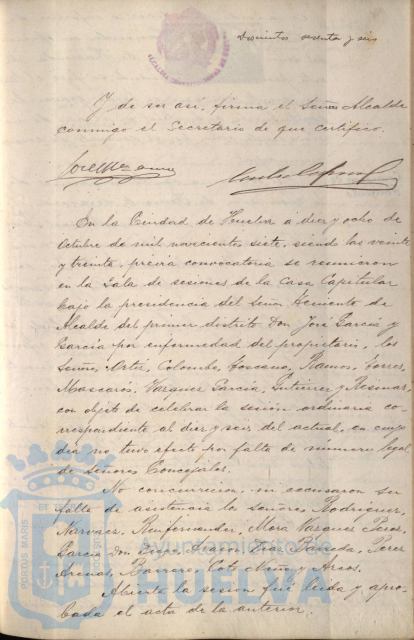 Doscientos sesenta y seis
Y de ser así, firma el Señor Alcalde
conmigo el Secretario de que certifico.
En la Ciudad de Huelva á diez y ocho de
Octubre de mil novecientos siete, siendo las veinte
y treinta, previa convocatoria se reunieron
en la Sala de sesiones de la Casa Capitular
bajo la presidencia del Señor Teniente de
Alcalde del primer distrito Don José García y
García por enfermedad del propietario, los
Señores Ortiz, Colombo, Toscano, Ramos, Torres,
Mascarós, Vazquez García, Gutierrez y Resinas,
con objeto de celebrar la sesión ordinaria co-
rrespondiente al diez y seis del actual, en cuyo
dia no tuvo efecto por falta de número legal
de Señores Concejales.
No concurrieron, ni excusaron su
falta de asistencia los Señores Rodriguez,
Narvaez, Mora, Vazquez Perez,
García Don Diego, Diaz, Perez
Barrero, Coto, Niño y Arcos.
Abierta la sesión fué leida y apro-
bada el acta de la anterior.
PORTUS MARIS
Ayuntamiento de
HUELVA